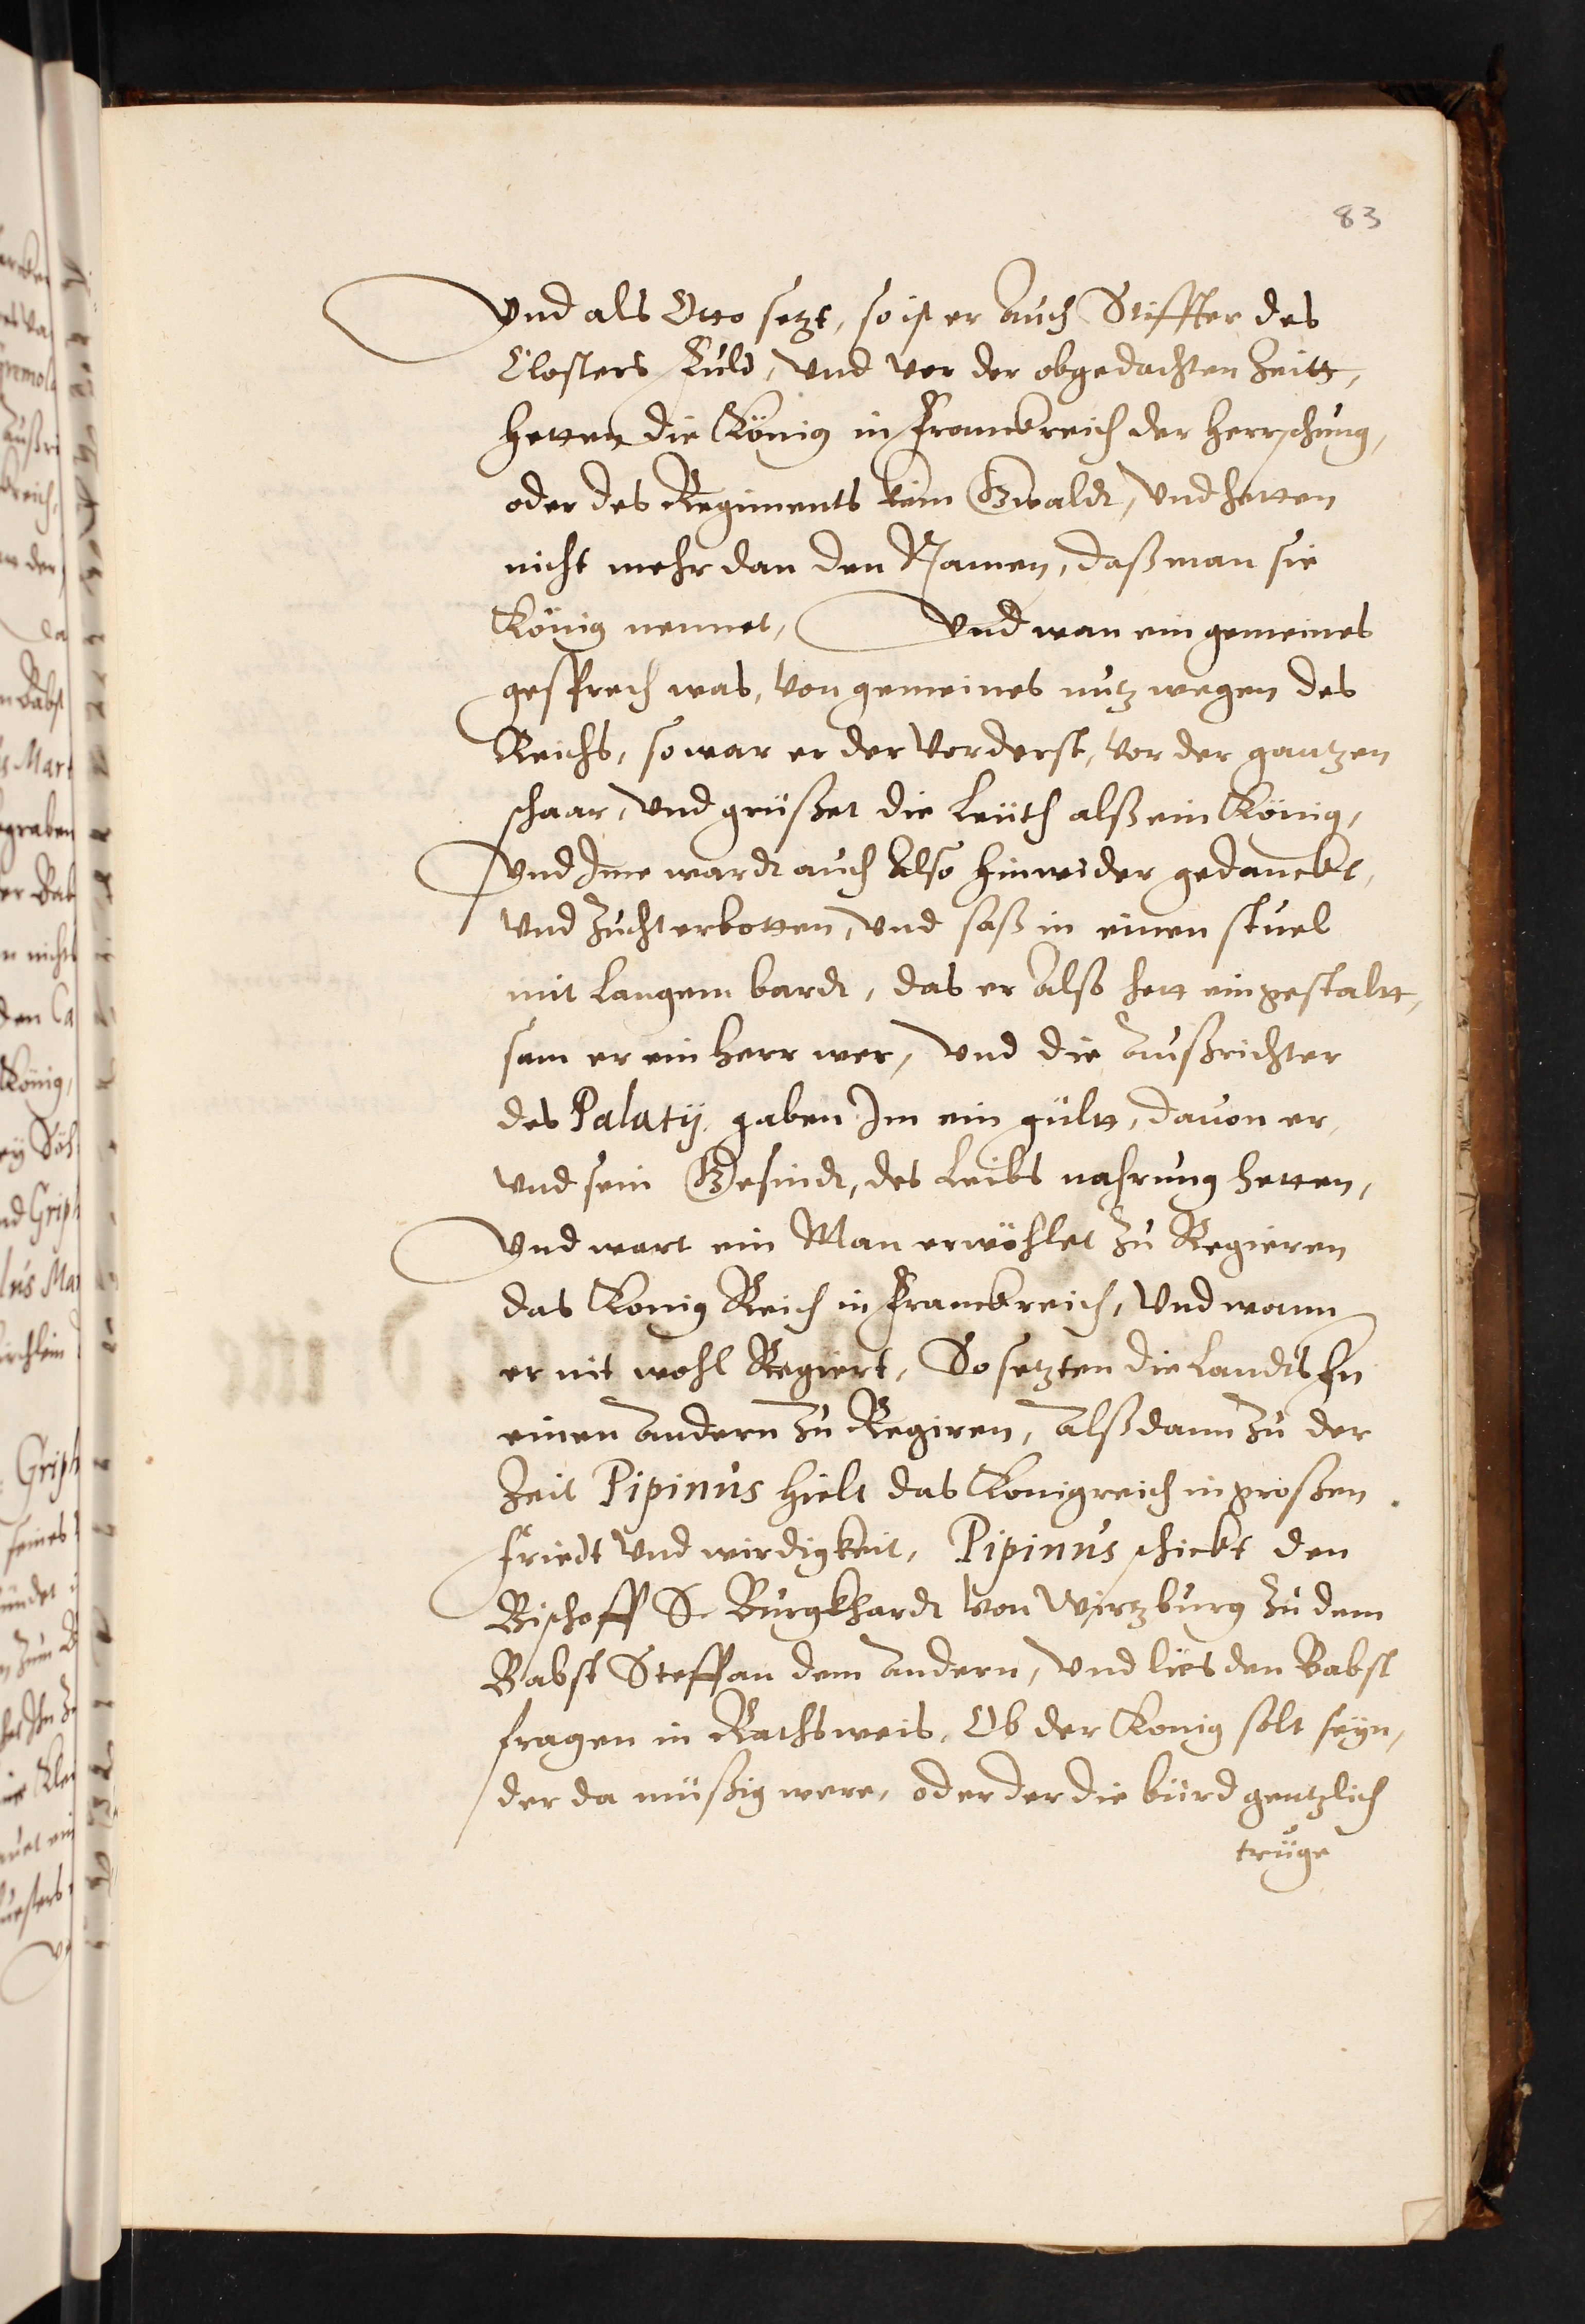 83
Vnd als Otto setzt, so ist er auch Stiffter des
Closters Fuld, vnd vor der obgedachten Zeitt,
hetten die König in Franckreich der Herrschung,
oder des Regiments kein Gwaldt, vnd hetten
nicht mehr dan den Namen, daß man sie
König nennet, Vnd wan ein gemeines
gesprech was, von gemeines nutz wegen des
Reichs, so war er der vorderst, vor der gantzen
schaar, vnd grüßet die Leüth alß ein König,
Vnd Ime wardt auch also hinwider gedanckt,
vnd Zucht erbotten, vnd saß in einen stuel
mit langem bardt, das er alß hett ein gestaltt,
sam er ein Herr wer, vnd die Außrichter
des Palatij gaben Im ein gültt, dauon er,
vnd sein Gesindt, des Leibs nahrung hetten,
Vnd wart ein Man erwöhlet zu Regieren
das Konig Reich in Franckreich, Vnd wann
er nit wohl Regiert, So setzten die Landts
einen andern zu Regiren, Alß dann zu der
Zeit Pipinus hielt das Konigreich in großen
friedt vnd wirdigkeit, Pipinus schickt den
Bischoff S. Burgkhardt von Wirtzburg zu dem
Babst Steffan dem andern, vnd lies den Babst
fragen in Rathsweis, Ob der Konig solt seyn,
der da müßig were, oder der die bürd gentzlich
trüge